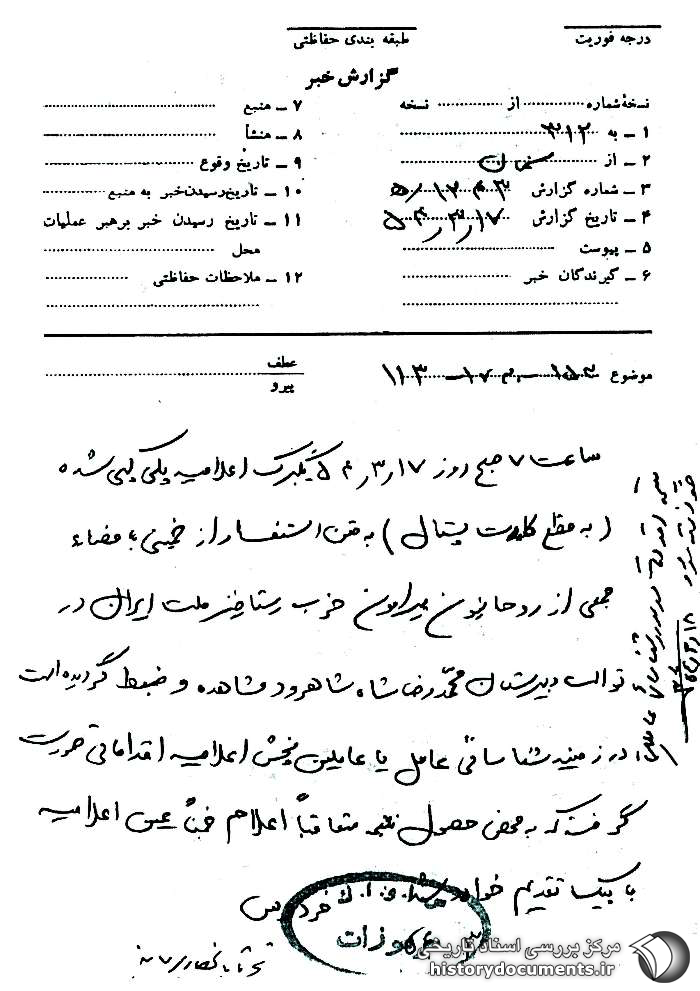 درجه فوریت
طبقه بندی حفاظتی
گزارش خبر
نسخهٔ شماره ............ از ............ نسخه
۱ ـ به ۳۱۲
۲ ـ از سمنان
۳ ـ شماره گزارش
۴ ـ تاریخ گزارش ۵۴/۳/۱۷
۵ ـ پیوست
۶ ـ گیرندگان خبر
۷ ـ منبع
۸ ـ منشأ
۹ ـ تاریخ وقوع
۱۰ ـ تاریخ رسیدن خبر به منبع
۱۱ ـ تاریخ رسیدن خبر برهبر عملیات
محل
۱۲ ـ ملاحظات حفاظتی
موضوع
عطف
پیرو
ساعت ۷ صبح روز ۵۴/۳/۱۷ یکبرگ اعلامیه پلی کپی شده
(به قطع کارت پستال) به متن استفسار از خمینی با مضاء
جمعی از روحانیون پیرامون حزب رستاخیز ملت ایران در
توالت دبیرستان محمدرضا شاه شاهرود مشاهده و ضبط گردیده است
در زمینه شناسائی عامل یا عاملین پخش اعلامیه اقداماتی صورت
گرفته که به محض حصول نتیجه متعاقباً اعلام ضمناً عین اعلامیه
با پیک تقدیم خواهد شد.
مرکز بررسی اسناد تاریخی
historydocuments.ir